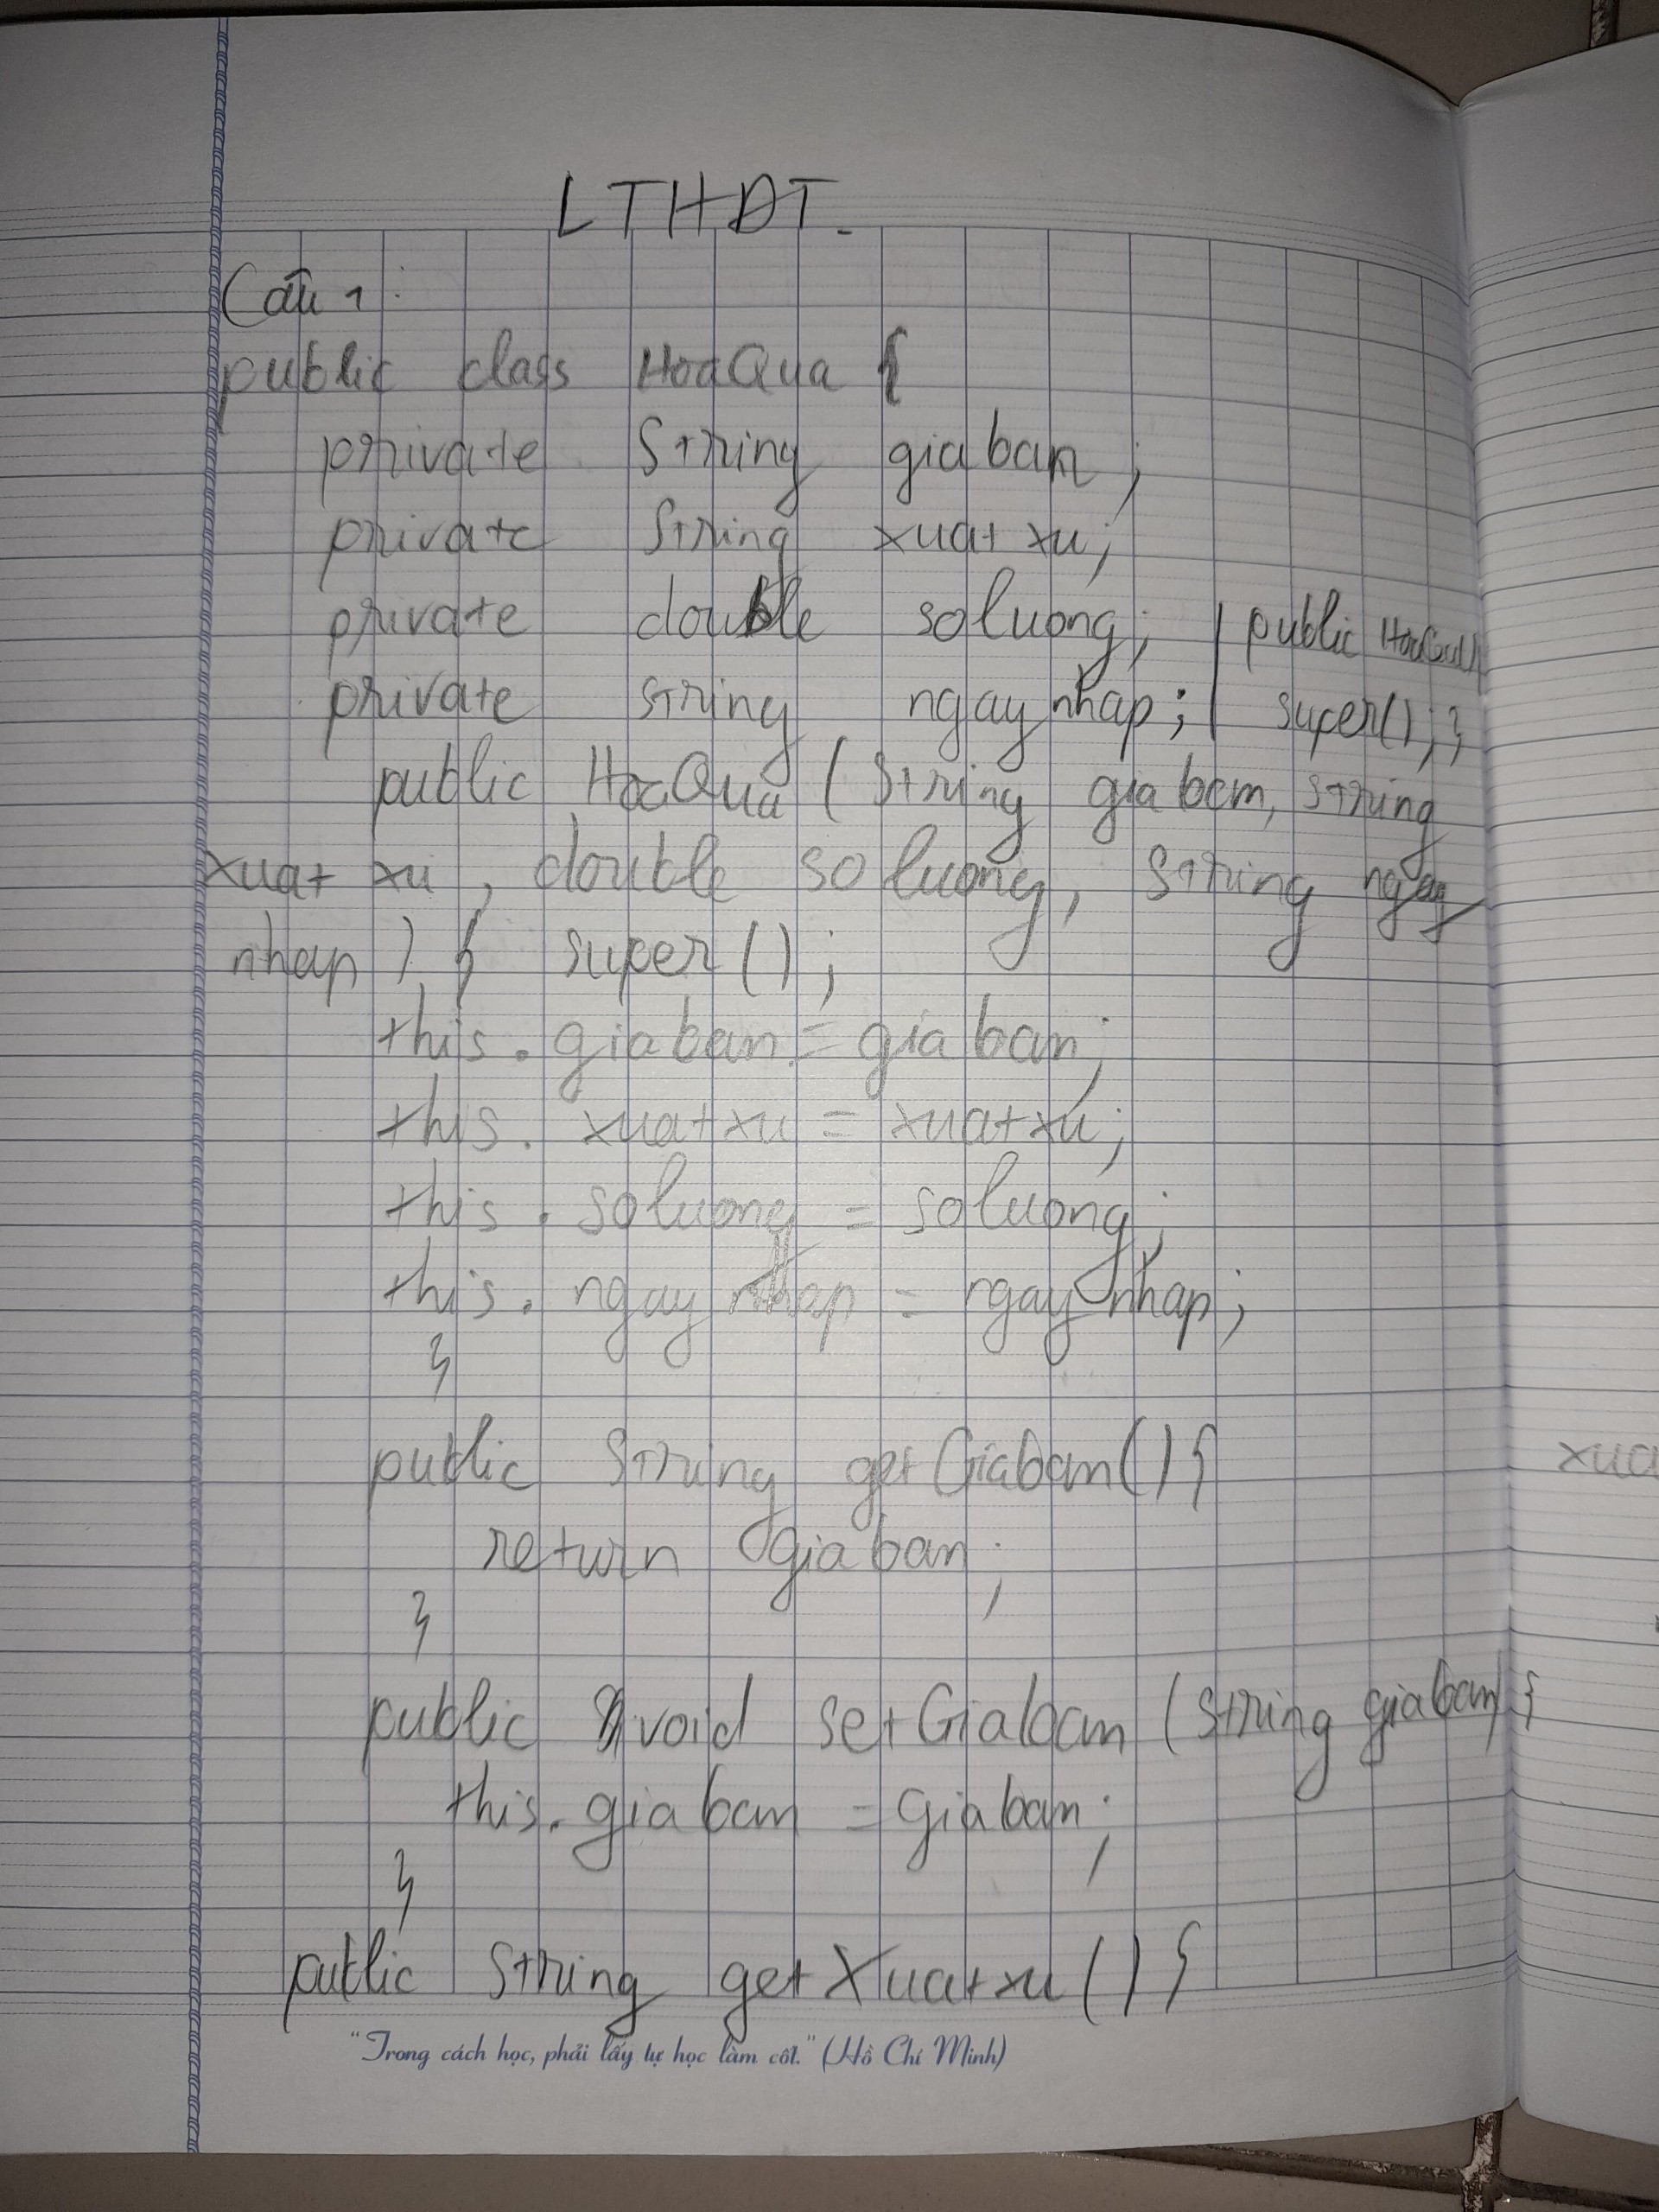 LTHĐT.
Câu 1:
public class HoaQua {
private String giaban;
private String xuatxu;
private double soluong; | public HoaQua(){
private string ngaynhap; | super(); }
public HoaQua (String giaban, string
xuatxu, double soluong, String ngay
nhap) { super();
this.giaban = giaban;
this.xuatxu = xuatxu;
this.soluong = soluong;
this.ngaynhap = ngaynhap;
}
public String getGiaban(){
return giaban;
}
public void setGiaban (string giaban) {
this.giaban = giaban;
}
public String getXuatxu () {
"Trong cách học, phải lấy tự học làm cốt." (Hồ Chí Minh)
xua